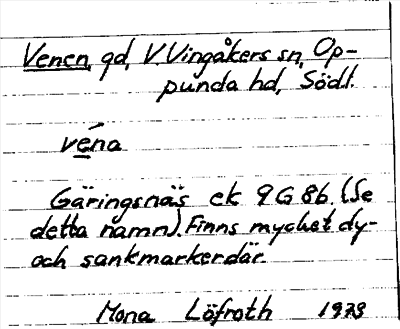 Venen, gd, V. Vingåkers sn, Op-
punda hd, Södl.
véna
Gäringsnäs ek 9G 8b. (Se
detta namn). Finns mycket dy-
och sankmarker där.
Mona Löfroth 1973